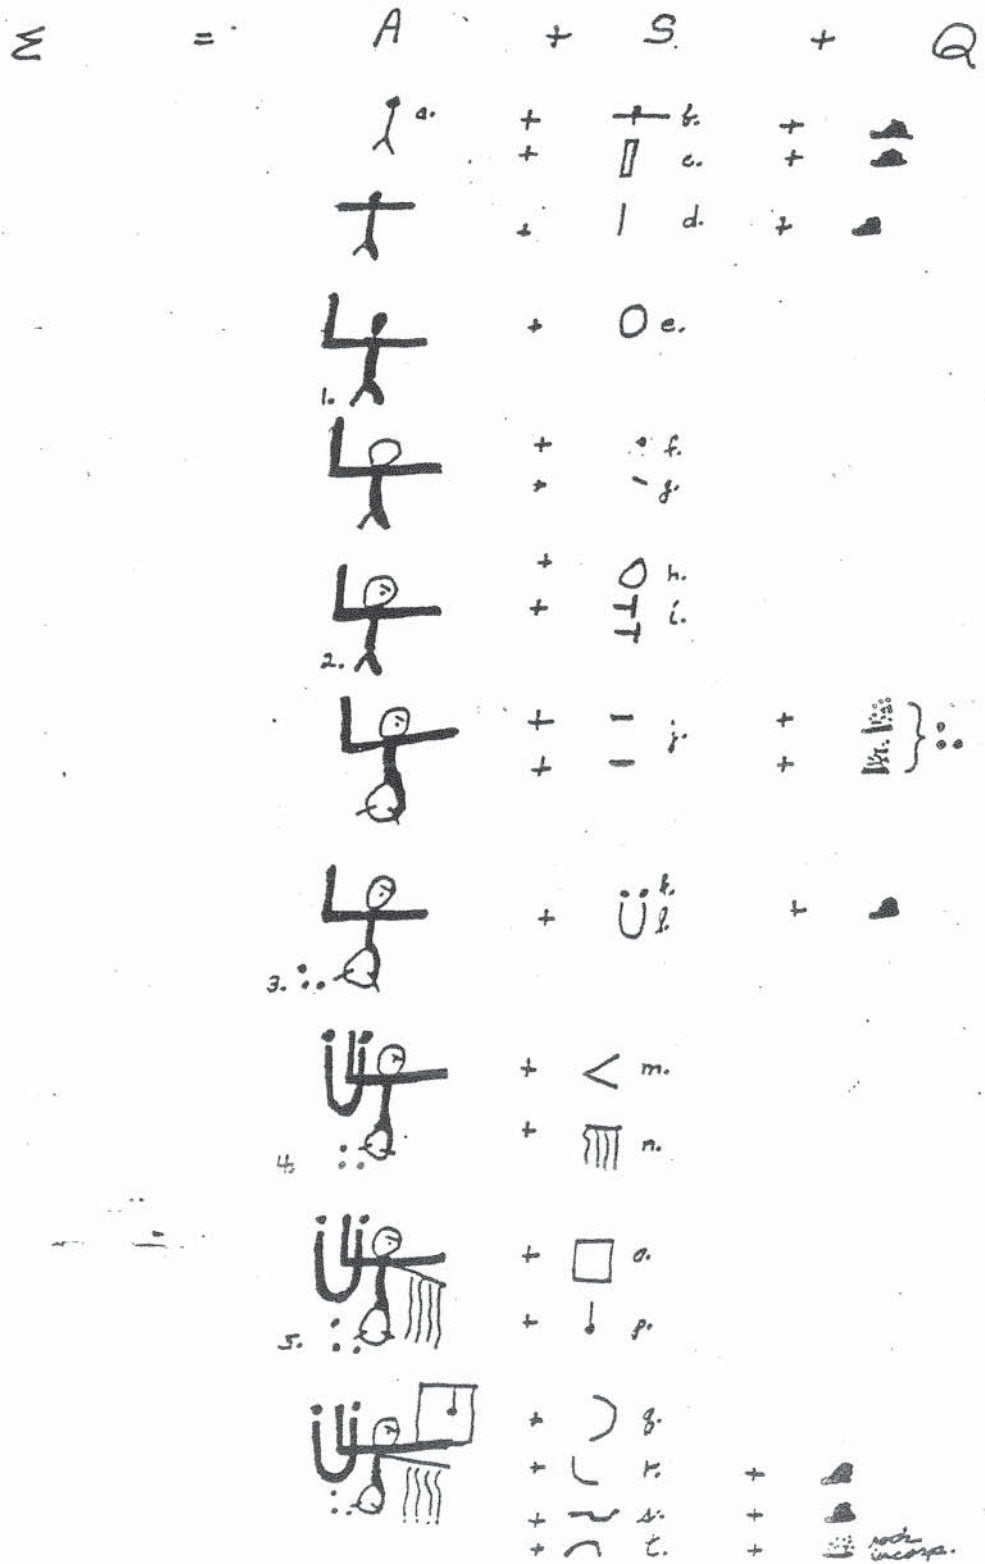 Σ = A + S. + Q
a. + b. +
+ c. +
+ d. +
+ e.
1.
+ f.
+ g.
+ h.
+ i.
2.
+ j. +
+ +
+ k.
l. +
3.
+ m.
+ n.
4.
+ o.
+ p.
5.
+ q.
+ r. +
+ s. +
+ t. + rock
incorp.